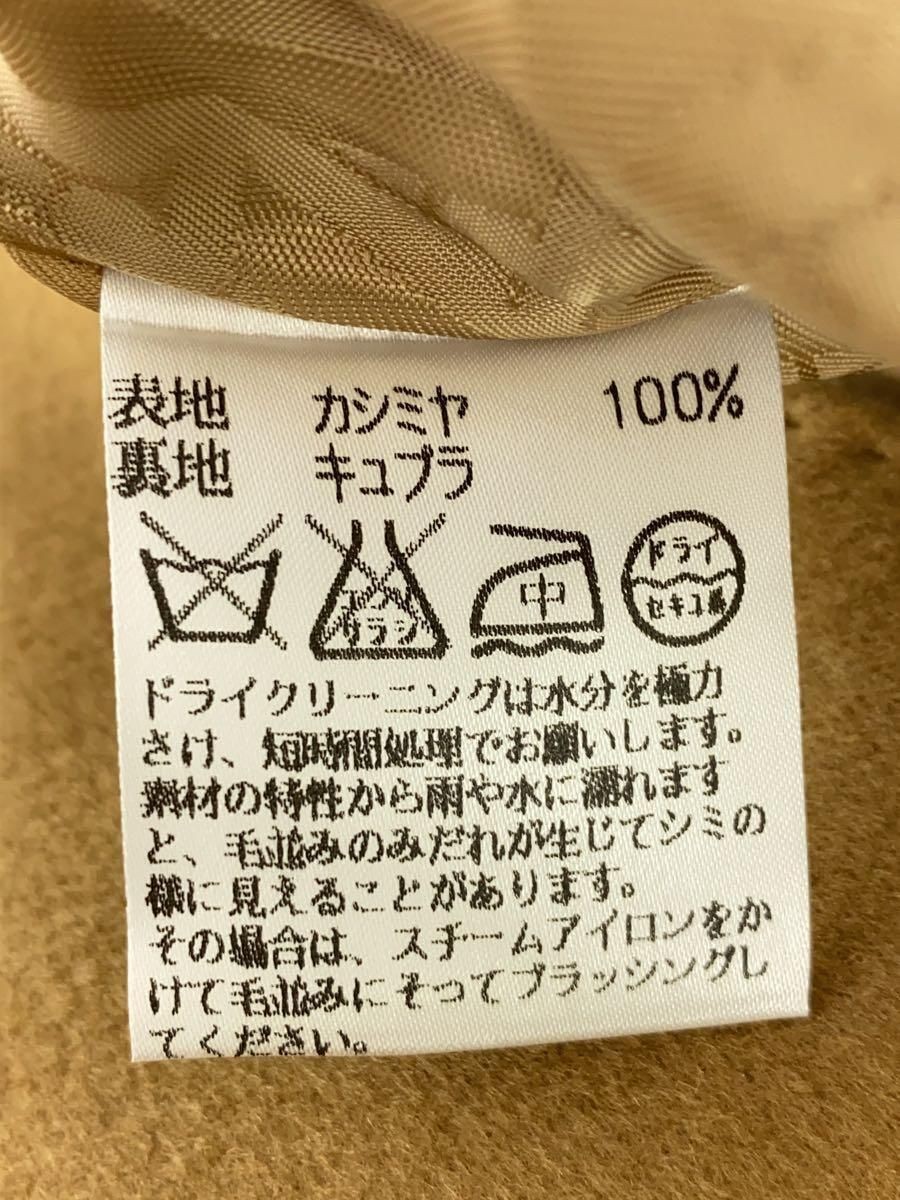 表地 カシミヤ 100%
裏地 キュプラ
エンソ
サラシ
中
ドライ
セキユ系
ドライクリーニングは水分を極力
さけ、短時間処理でお願いします。
素材の特性から雨や水に濡れます
と、毛並みのみだれが生じてシミの
様に見えることがあります。
その場合は、スチームアイロンをか
けて毛並みにそってブラッシングし
てください。